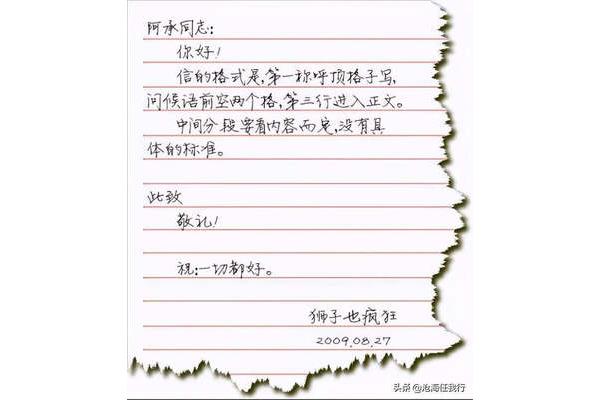 阿承同志:
你好!
信的格式是,第一称呼顶格子写,
问候语前空两个格,第三行进入正文。
中间分段要看内容而定,没有具
体的标准。
此致
敬礼!
祝:一切都好。
狮子也疯狂
2009.08.27
头条 @沧海任我行